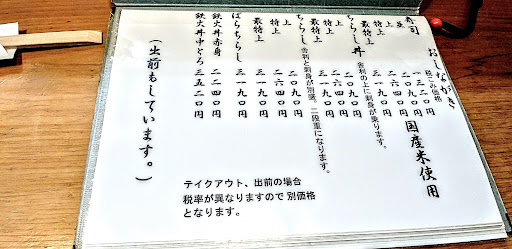 おしながき
税こみ価格
国産米使用
寿司
並 一三二〇円
上 二〇九〇円
特上 二六四〇円
最特上 三一九〇円
ちらし丼 舎利の上に刺身が乗ります。
上 二〇九〇円
特上 二六四〇円
最特上 三一九〇円
ちらし 舎利と刺身が別盛。二段重になります。
上 二〇九〇円
特上 二六四〇円
最特上 三一九〇円
ばらちらし 三一九〇円
鉄火丼赤身
鉄火丼中とろ 三五二〇円
(出前もしています。)
テイクアウト、出前の場合
税率が異なりますので 別価格
となります。